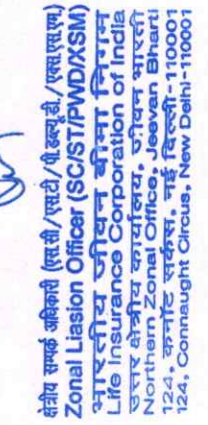 क्षेत्रीय सम्पर्क अधिकारी (एस.सी/एस.टी/पी.डब्ल्यू.डी./एक्स.एस.एम)
Zonal Liasion Officer (SC/ST/PWD/XSM)
भारतीय जीवन बीमा निगम
Life Insurance Corporation of India
उत्तर क्षेत्रीय कार्यालय, जीवन भारती
Northern Zonal Office, Jeevan Bharti
124, कनॉट सर्कस, नई दिल्ली-110001
124, Connaught Circus, New Delhi-110001